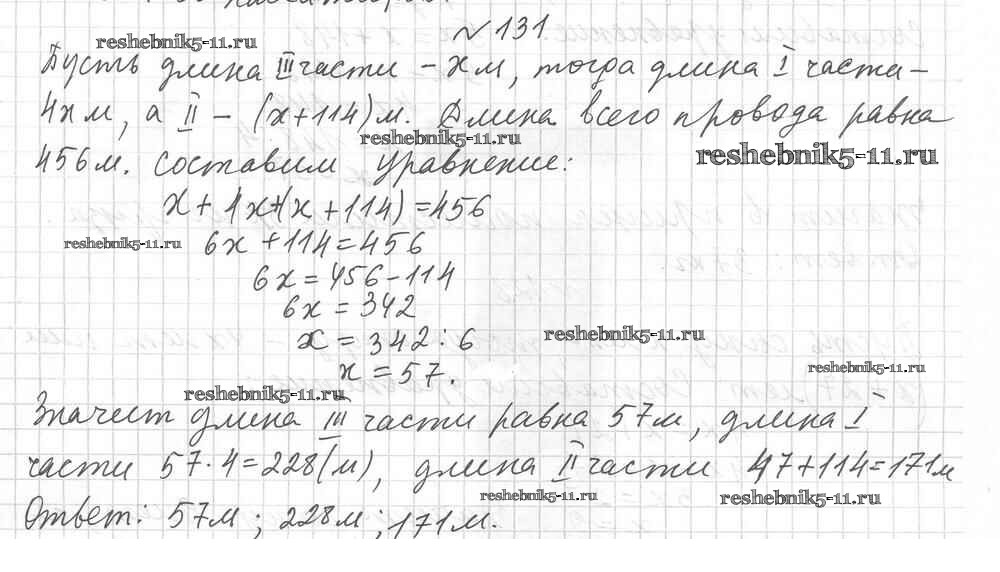 №131
reshebnik5-11.ru
Пусть длина III части – х м, тогда длина I части –
4х м, а II – (х+114)м. Длина всего провода равна
reshebnik5-11.ru
456м. составим уравнение:
reshebnik5-11.ru
х + 4х+(х+114)=456
reshebnik5-11.ru
6х+114=456
6х=456-114
6х=342
х=342:6
reshebnik5-11.ru
х=57.
reshebnik5-11.ru
reshebnik5-11.ru
Значит длина III части равна 57м, длина I
части 57·4=228(м), длина II части 47+114=171м
reshebnik5-11.ru
reshebnik5-11.ru
Ответ: 57м; 228м; 171м.